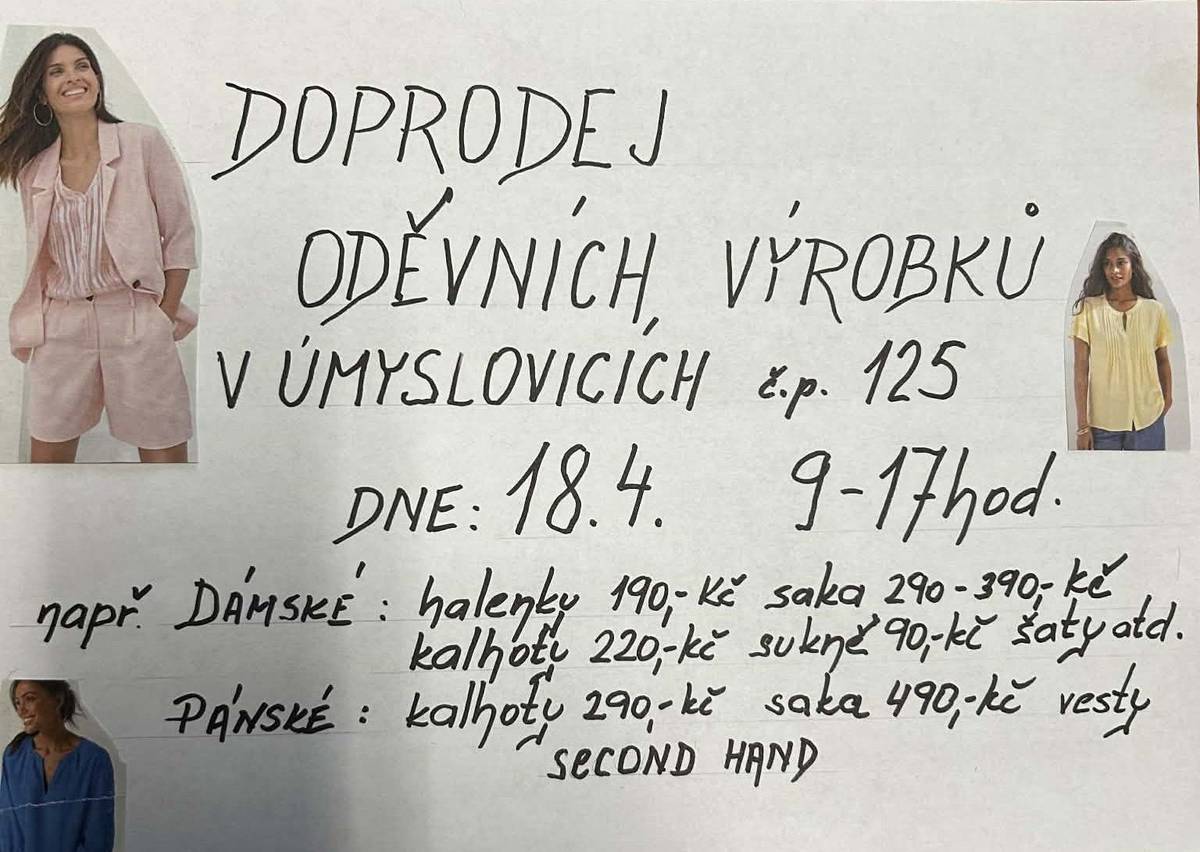 DOPRODEJ
ODĚVNÍCH VÝROBKŮ
V ÚMYSLOVICÍCH č.p. 125
DNE: 18.4. 9-17hod.
např. DÁMSKÉ: halenky 190,-Kč saka 290-390,-kč
kalhoty 220,-kč sukně 90,-kč šaty atd.
PÁNSKÉ: kalhoty 290,-kč saka 490,-kč vesty
SECOND HAND